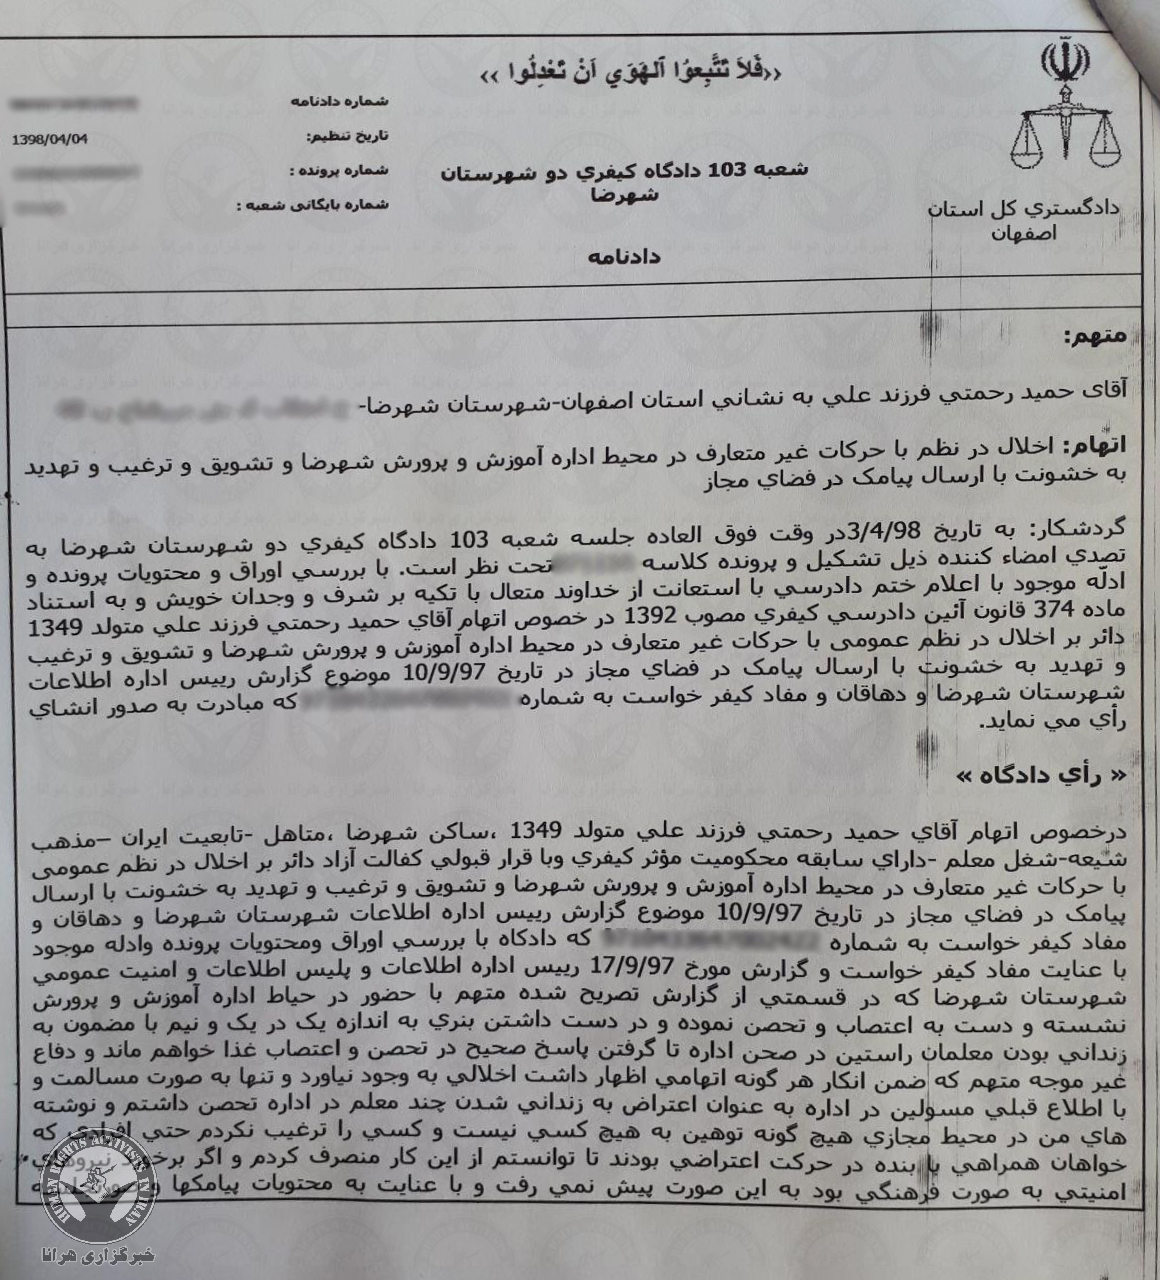 ‹‹فَلاَ تَتَّبِعوُا اَلهَوَي اَنْ تَعْدِلُوا ››
شماره دادنامه
تاریخ تنظیم: 1398/04/04
شماره پرونده :
شماره بایگانی شعبه :
شعبه 103 دادگاه کیفري دو شهرستان
شهرضا
دادنامه
دادگستري کل استان
اصفهان
متهم:
آقای حمید رحمتي فرزند علي به نشاني استان اصفهان-شهرستان شهرضا-
اتهام: اخلال در نظم با حرکات غیر متعارف در محیط اداره آموزش و پرورش شهرضا و تشویق و ترغیب و تهدید
به خشونت با ارسال پیامک در فضاي مجاز
گردشکار: به تاریخ 3/4/98در وقت فوق العاده جلسه شعبه 103 دادگاه کیفري دو شهرستان شهرضا به
تصدي امضاء کننده ذیل تشکیل و پرونده کلاسه تحت نظر است. با بررسي اوراق و محتویات پرونده و
ادلّه موجود با اعلام ختم دادرسي با استعانت از خداوند متعال با تکیه بر شرف و وجدان خویش و به استناد
ماده 374 قانون آئین دادرسي کیفري مصوب 1392 در خصوص اتهام آقاي حمید رحمتي فرزند علي متولد 1349
دائر بر اخلال در نظم عمومی با حرکات غیر متعارف در محیط اداره آموزش و پرورش شهرضا و تشویق و ترغیب
و تهدید به خشونت با ارسال پیامک در فضاي مجاز در تاریخ 10/9/97 موضوع گزارش رییس اداره اطلاعات
شهرستان شهرضا و دهاقان و مفاد کیفر خواست به شماره که مبادرت به صدور انشاي
رأي مي نماید.
« رأي دادگاه »
درخصوص اتهام آقاي حمید رحمتي فرزند علي متولد 1349 ،ساکن شهرضا ،متاهل -تابعیت ایران –مذهب
شیعه-شغل معلم -داراي سابقه محکومیت مؤثر کیفري وبا قرار قبولي کفالت آزاد دائر بر اخلال در نظم عمومی
با حرکات غیر متعارف در محیط اداره آموزش و پرورش شهرضا و تشویق و ترغیب و تهدید به خشونت با ارسال
پیامک در فضاي مجاز در تاریخ 10/9/97 موضوع گزارش رییس اداره اطلاعات شهرستان شهرضا و دهاقان و
مفاد کیفر خواست به شماره که دادکاه با بررسي اوراق ومحتویات پرونده وادله موجود
با عنایت مفاد کیفر خواست و گزارش مورخ 17/9/97 رییس اداره اطلاعات و پلیس اطلاعات و امنیت عمومي
شهرستان شهرضا که در قسمتي از گزارش تصریح شده متهم با حضور در حیاط اداره آموزش و پرورش
نشسته و دست به اعتصاب و تحصن نموده و در دست داشتن بنري به اندازه یک در یک و نیم با مضمون به
زنداني بودن معلمان راستین در صحن اداره تا گرفتن پاسخ صحیح در تحصن و اعتصاب غذا خواهم ماند و دفاع
غیر موجه متهم که ضمن انکار هر گونه اتهامي اظهار داشت اخلالي به وجود نیاورد و تنها به صورت مسالمت و
با اطلاع قبلي مسولین در اداره به عنوان اعتراض به زنداني شدن چند معلم در اداره تحصن داشتم و نوشته
هاي من در محیط مجازي هیچ گونه توهین به هیچ کسي نیست و کسي را ترغیب نکردم حتي افرادي که
خواهان همراهي با بنده در حرکت اعتراضي بودند تا توانستم از این کار منصرف کردم و اگر برخورد نیروهاي
امنیتي به صورت فرهنگي بود به این صورت پیش نمي رفت و با عنایت به محتویات پیامکها و
HUMAN RIGHTS ACTIVISTS IN IRAN
خبرگزاری هرانا